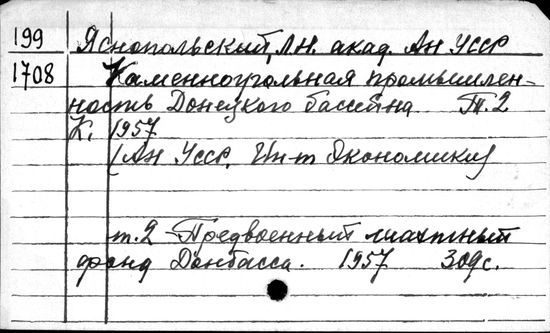 199 Яснопольский, Л.Н. акад. Ан Усср
1708 Каменноугольная промышлен-
ность Донецкого бассейна. Т.2
К., 1957
(Ан Усср. Ин-т Экономики)
т.2 Предвоенный шахтный
фонд Донбасса. 1957 309с.